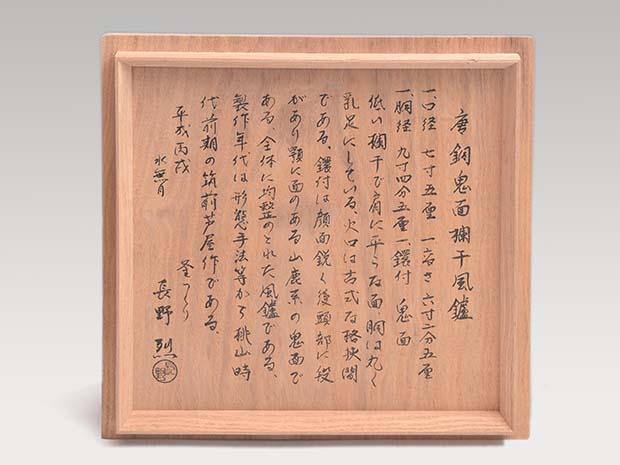 唐銅鬼面欄干風鑪
一、口径 七寸五厘 一、高さ 六寸二分五厘
一、胴径 九寸四分五厘 一、鐶付 鬼面
低い欄干で肩に平らな面、胴は丸く
乳足にしている、火口は古式な格狭間
である、鐶付は顔面鋭く後頭部に段
があり顎に面のある山鹿系の鬼面で
ある、全体に均整のとれた風鑪である、
製作年代は形態手法等から桃山時
代前期の筑前芦屋作である、
平成丙戌
水無月
釜つくり
長野 烈